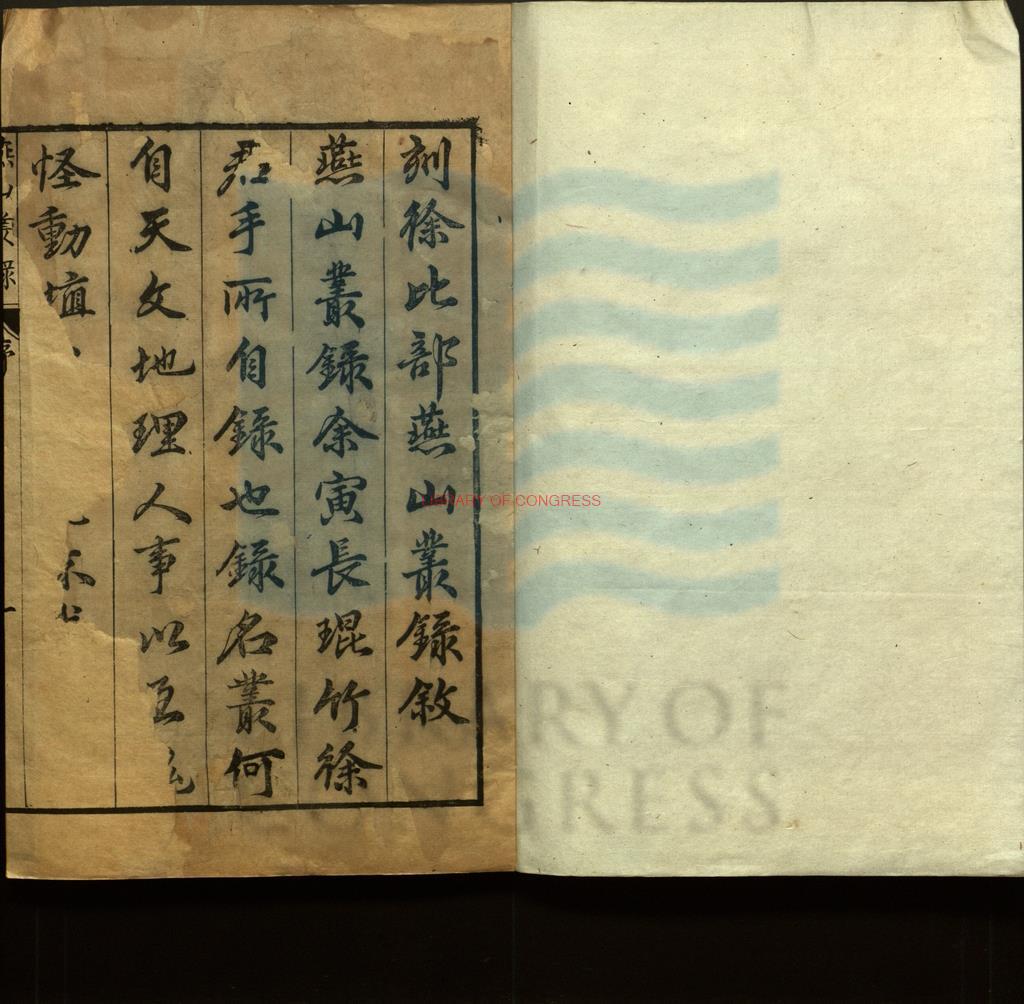 刻徐比部燕山叢錄敘
燕山叢錄余寅長琨竹徐
君手所自錄也錄名叢何
自天文地理人事以至
怪動植
燕山叢錄
序
一
LIBRARY OF CONGRESS
LIBRARY OF
CONGRESS